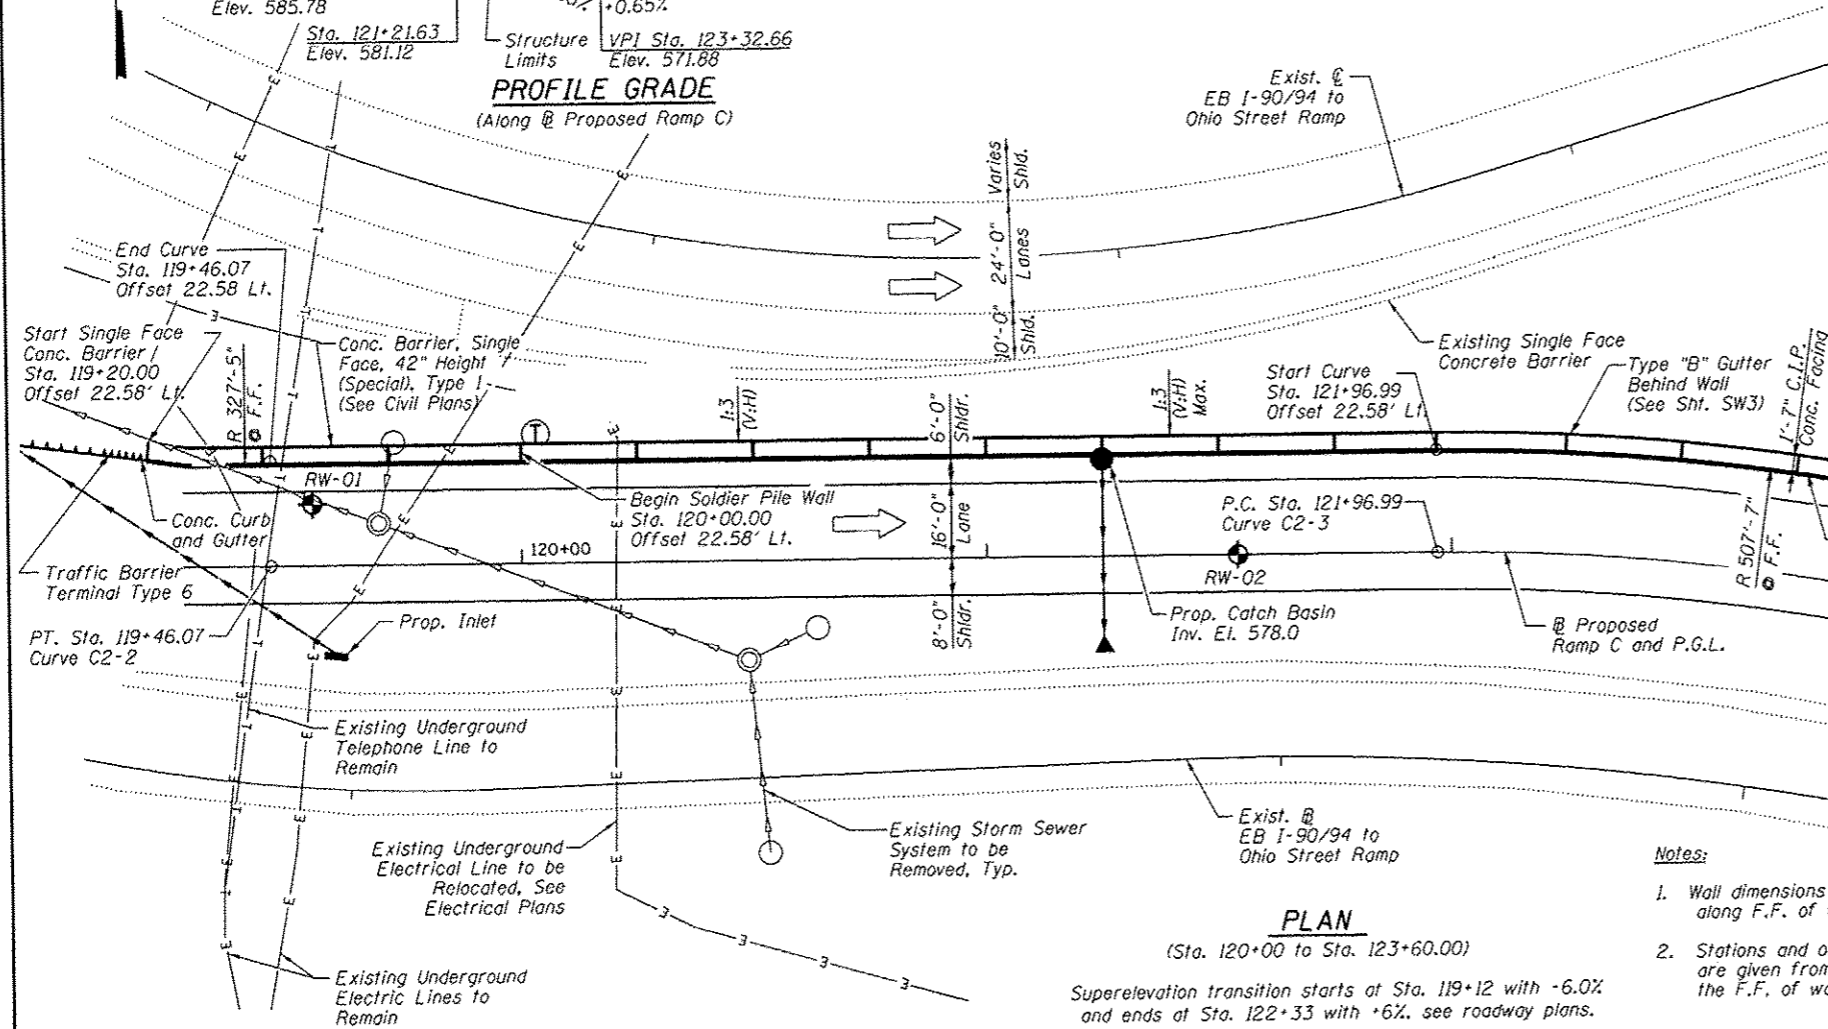 Elev. 585.78
Sta. 121+21.63
Elev. 581.12
Structure
Limits
+0.65%
VPI Sta. 123+32.66
Elev. 571.88
PROFILE GRADE
(Along ℄ Proposed Ramp C)
Exist. ℄
EB I-90/94 to
Ohio Street Ramp
Varies
Shld.
24'-0"
Lanes
10'-0"
Shld.
End Curve
Sta. 119+46.07
Offset 22.58 Lt.
Start Single Face
Conc. Barrier
Sta. 119+20.00
Offset 22.58' Lt.
R 327'-5"
@ F.F.
Conc. Barrier, Single
Face, 42" Height
(Special), Type 1
(See Civil Plans)
1:3
(V:H)
6'-0"
Shldr.
1:3
(V:H)
Max.
Start Curve
Sta. 121+96.99
Offset 22.58' Lt.
Existing Single Face
Concrete Barrier
Type "B" Gutter
Behind Wall
(See Sht. SW3)
1'-7" C.I.P.
Conc. Facing
T
RW-01
Conc. Curb
and Gutter
Begin Soldier Pile Wall
Sta. 120+00.00
Offset 22.58' Lt.
120+00
16'-0"
Lane
P.C. Sta. 121+96.99
Curve C2-3
RW-02
R 507'-7"
@ F.F.
Traffic Barrier
Terminal Type 6
PT. Sta. 119+46.07
Curve C2-2
Prop. Inlet
8'-0"
Shldr.
Prop. Catch Basin
Inv. El. 578.0
B Proposed
Ramp C and P.G.L.
Existing Underground
Telephone Line to
Remain
Existing Underground
Electrical Line to be
Relocated, See
Electrical Plans
Existing Storm Sewer
System to be
Removed, Typ.
Exist. B
EB I-90/94 to
Ohio Street Ramp
Existing Underground
Electric Lines to
Remain
PLAN
(Sta. 120+00 to Sta. 123+60.00)
Superelevation transition starts at Sta. 119+12 with -6.0%
and ends at Sta. 122+33 with +6%. see roadway plans.
Notes:
1. Wall dimensions
along F.F. of
2. Stations and
are given from
the F.F. of